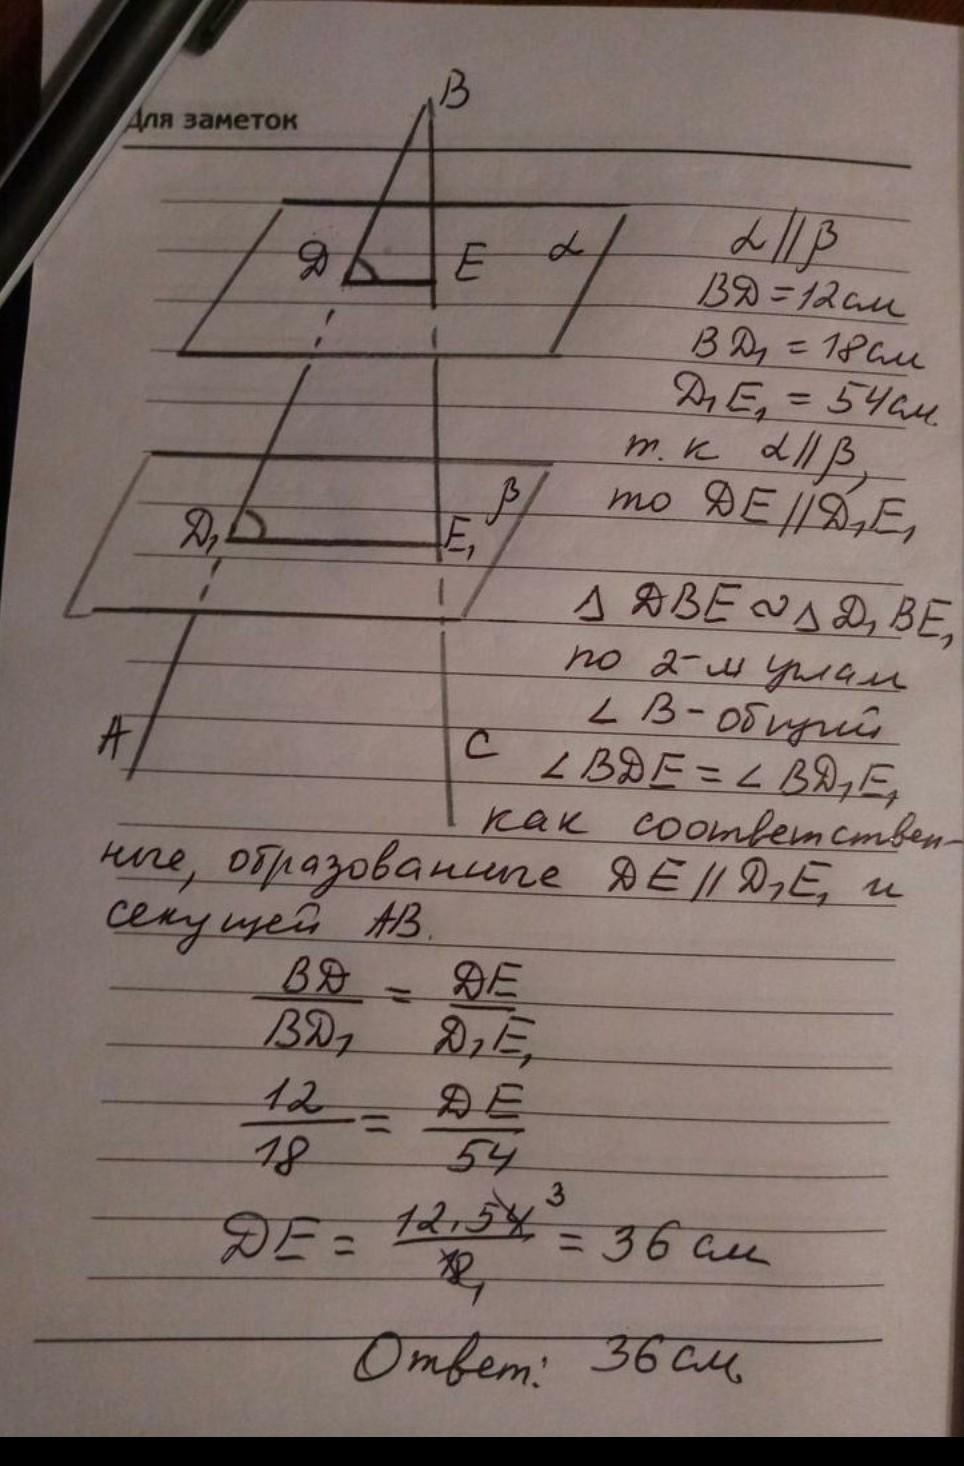 Для заметок
B
D E α
α // β
BD = 12 см
BD₁ = 18 см
D₁E₁ = 54 см.
т. к α // β,
то DE // D₁E₁
D₁ E₁ β
Δ DBE ~ Δ D₁BE₁
по 2-м углам
∠ B - общий
A C
∠ BDE = ∠ BD₁E₁
как соответствен-
ные, образованные DE // D₁E₁ и
секущей AB.
BD/BD₁ = DE/D₁E₁
12/18 = DE/54
DE = 12 . 54 3 / 18 1 = 36 см
Ответ: 36 см.